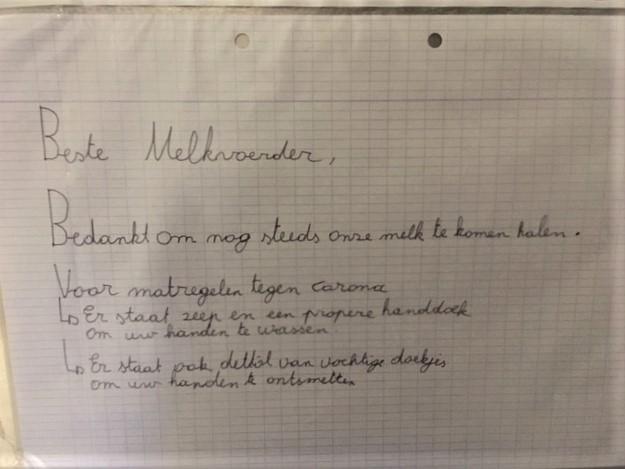 Beste Melkvoerder,
Bedankt om nog steeds onze melk te komen halen.
Voor matregelen tegen carona
↳ Er staat zeep en een propere handdoek
om uw handen te wassen
↳ Er staat ook dettol van vochtige doekjes
om uw handen te ontsmetten